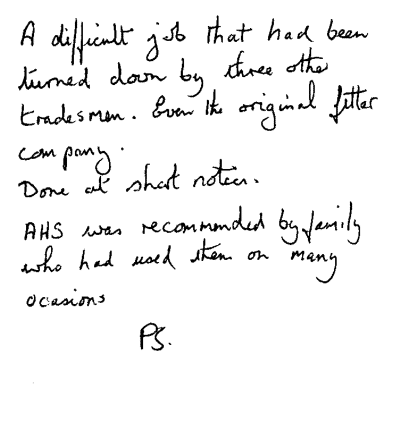 A difficult job that had been
turned down by three other
tradesmen. Even the original fitter
company.
Done at short notice.
AHS was recommended by family
who had used them on many
ocasions
PS.